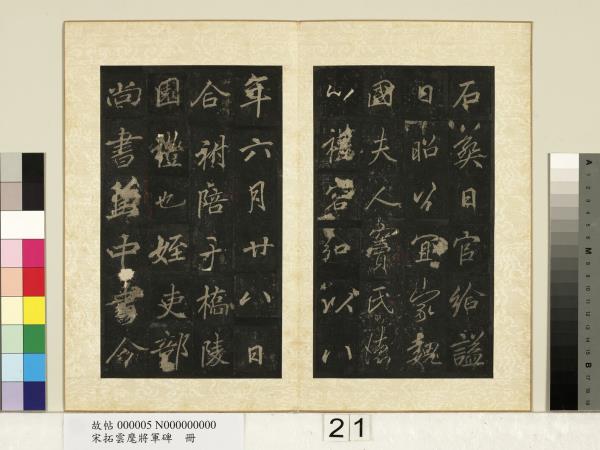 石葬日官給謚
曰昭公宜家魏
國夫人竇氏德
心禮容以八
年六月廿八日
合祔陪于橋陵
園禮也姪吏部
尚書兼中書令
故帖 000005 N000000000
宋拓雲麾將軍碑 冊
21